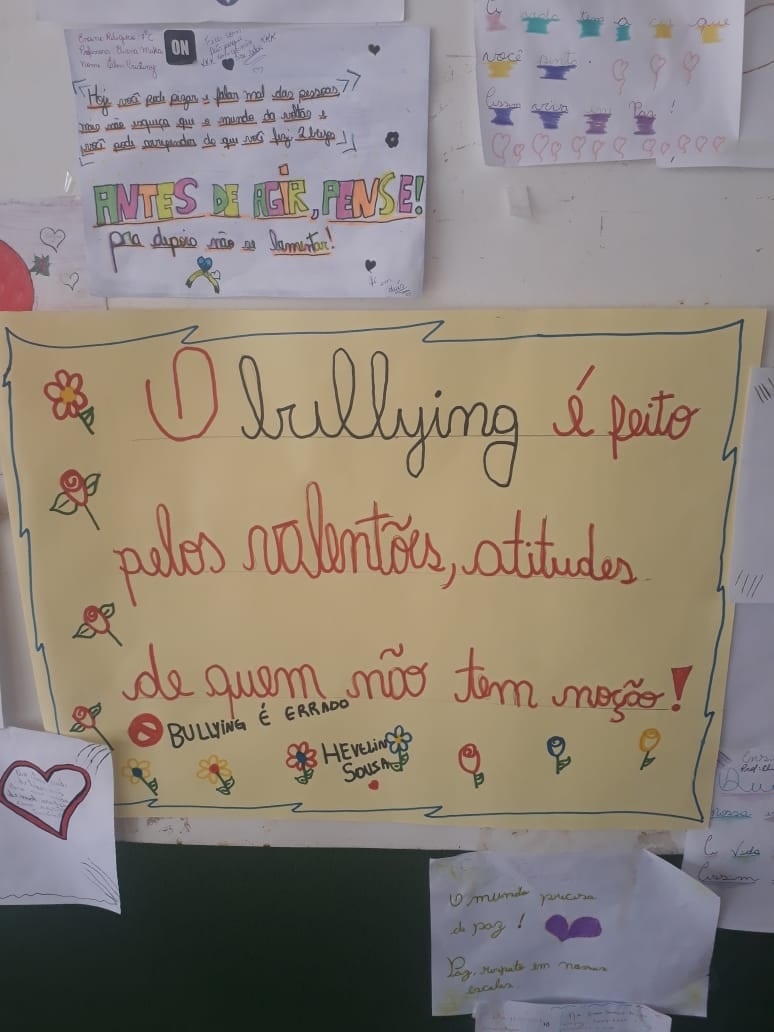 Ensino Religioso 8°C
Professora
Nome
ON
Hoje você pode pegar e falar mal das pessoas
mas não esqueça que o mundo da voltas e
você pode arrepender do que você fez
ANTES DE AGIR, PENSE!
pra depois não se lamentar!
que
você sinta.
Assim viva em Paz!
O bullying é feito
pelos valentões, atitudes
de quem não tem noção!
BULLYING É ERRADO
HEVELIN
SOUSA
nossa
A vida
Assim
O mundo precisa
de paz!
Paz, respeito em nossas
escolas.